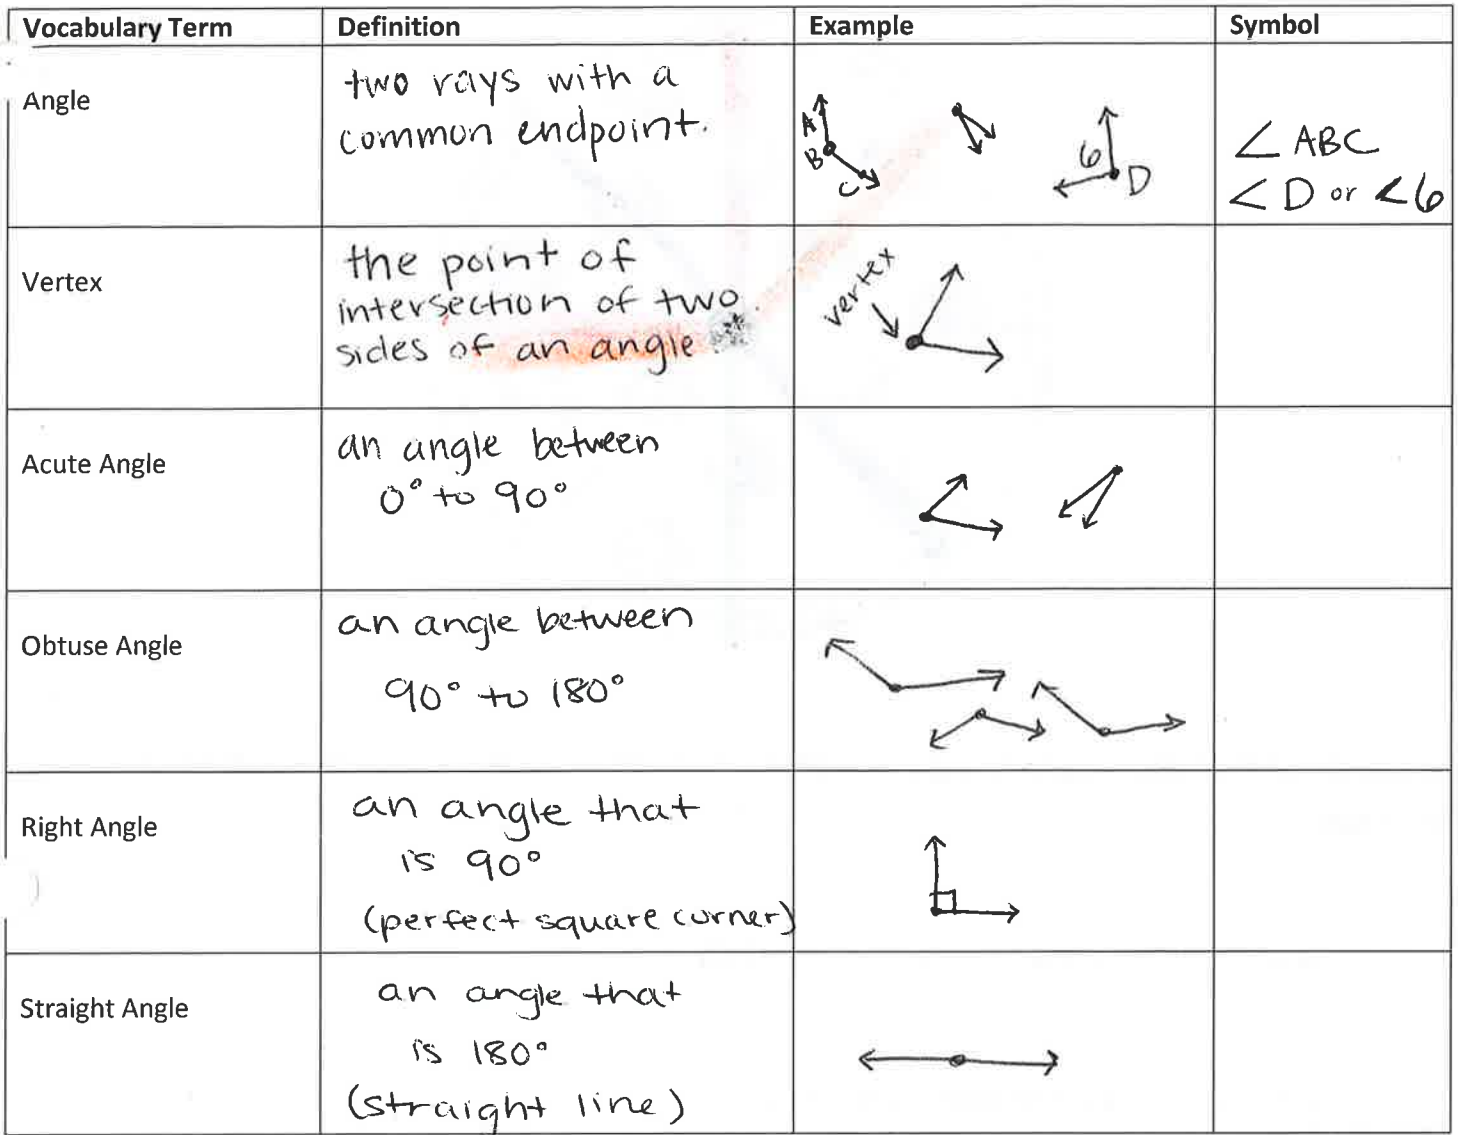 Vocabulary Term Definition Example Symbol
Angle
two rays with a
common endpoint.
A
B
C
6
D
∠ ABC
∠ D or ∠6
Vertex
the point of
intersection of two
sides of an angle.
vertex
Acute Angle
an angle between
0° to 90°
Obtuse Angle
an angle between
90° to 180°
Right Angle
an angle that
is 90°
(perfect square corner)
Straight Angle
an angle that
is 180°
(straight line)